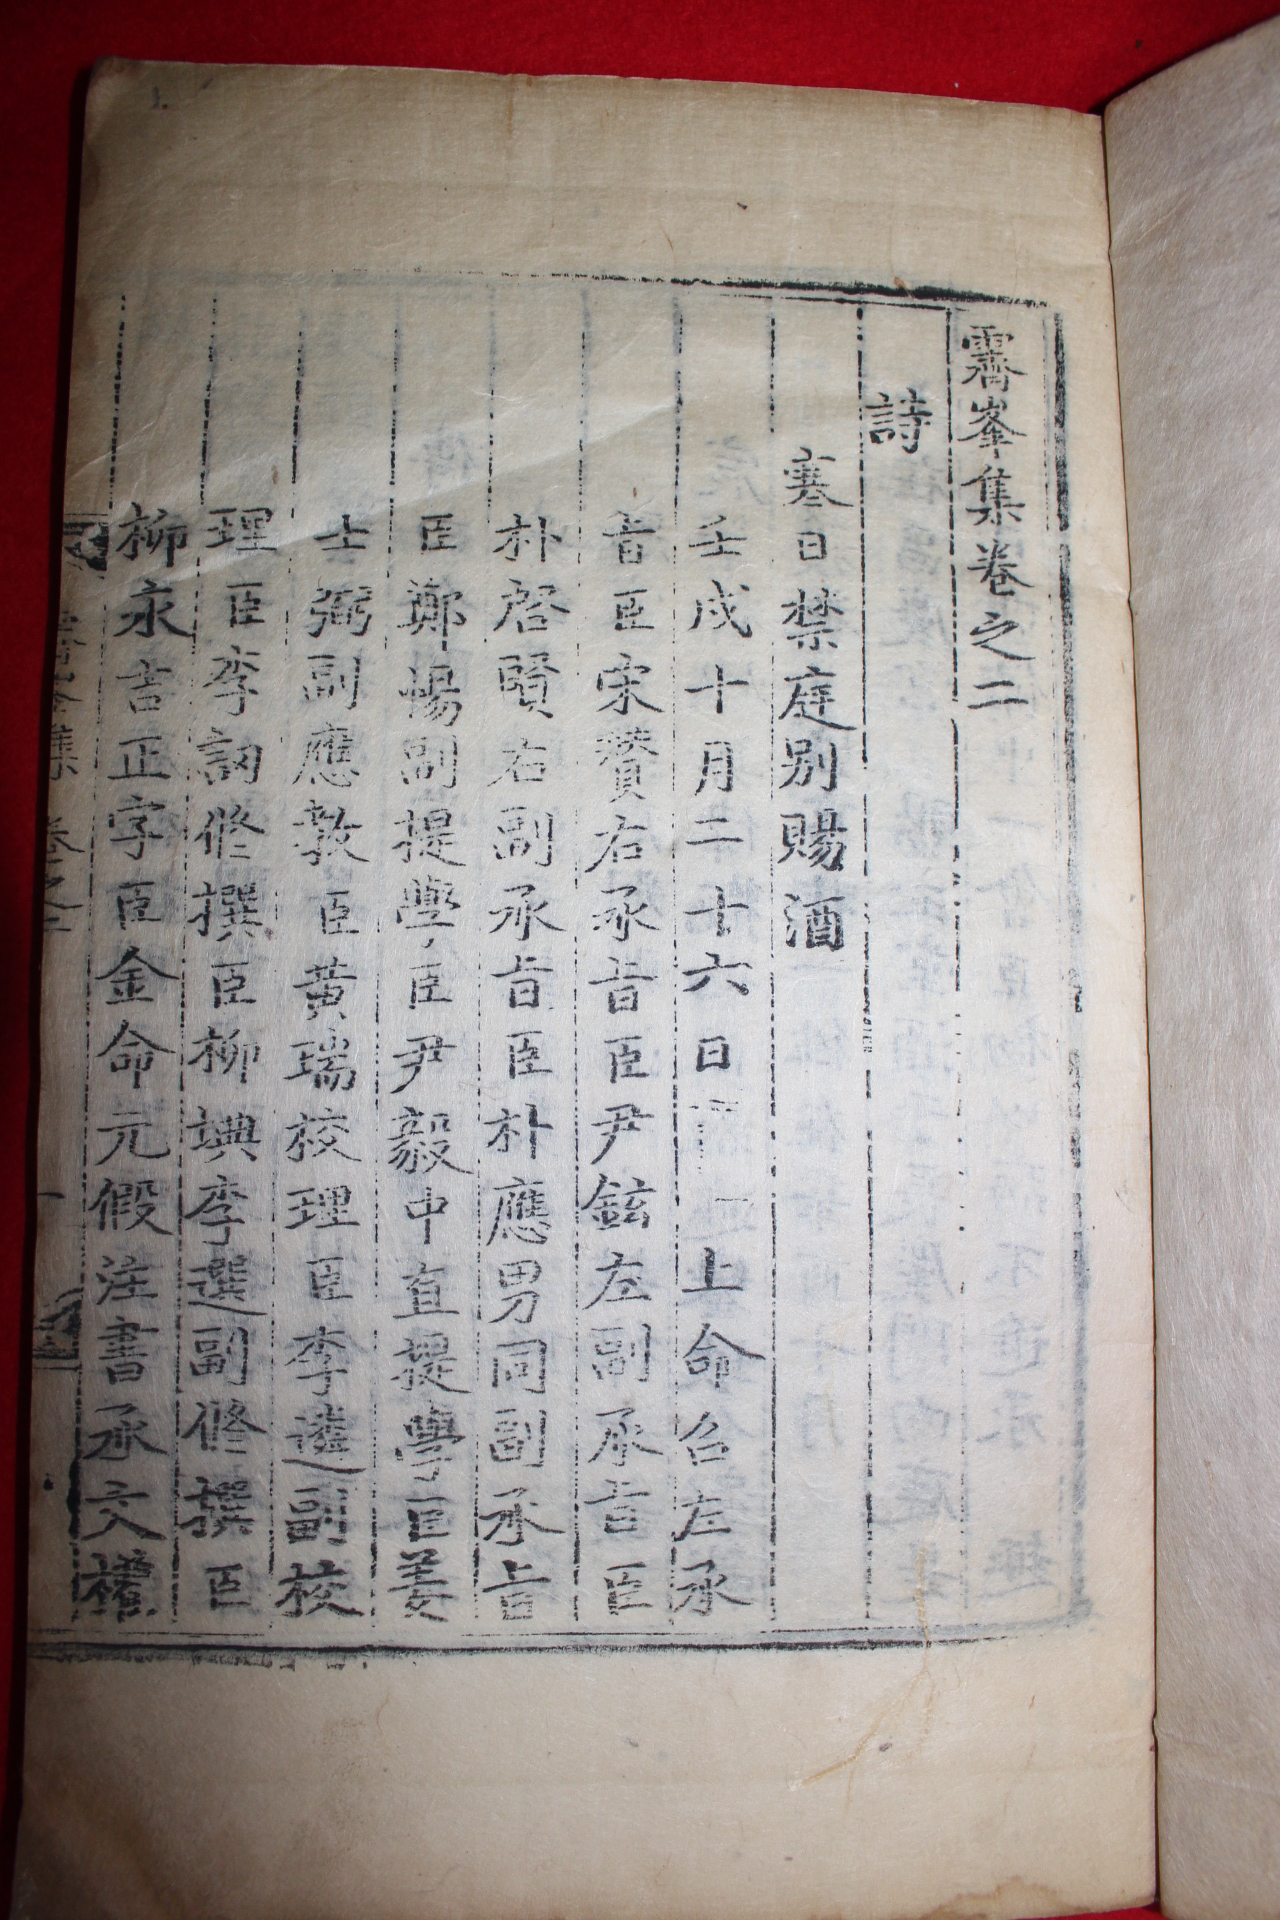 霽峯集卷之二
詩
寒日禁庭別賜酒
壬戌十月二十六日 上命召左承
旨臣宋贊右承旨臣尹鉉左副承旨臣
朴啓賢右副承旨臣朴應男同副承旨
臣鄭惕副提學臣尹毅中直提學臣姜
士弼副應敎臣黃瑞校理臣李遴副校
理臣李訒修撰臣柳㙉李選副修撰臣
柳永吉正字臣金命元假注書承文權
霽峯集 卷之二 一